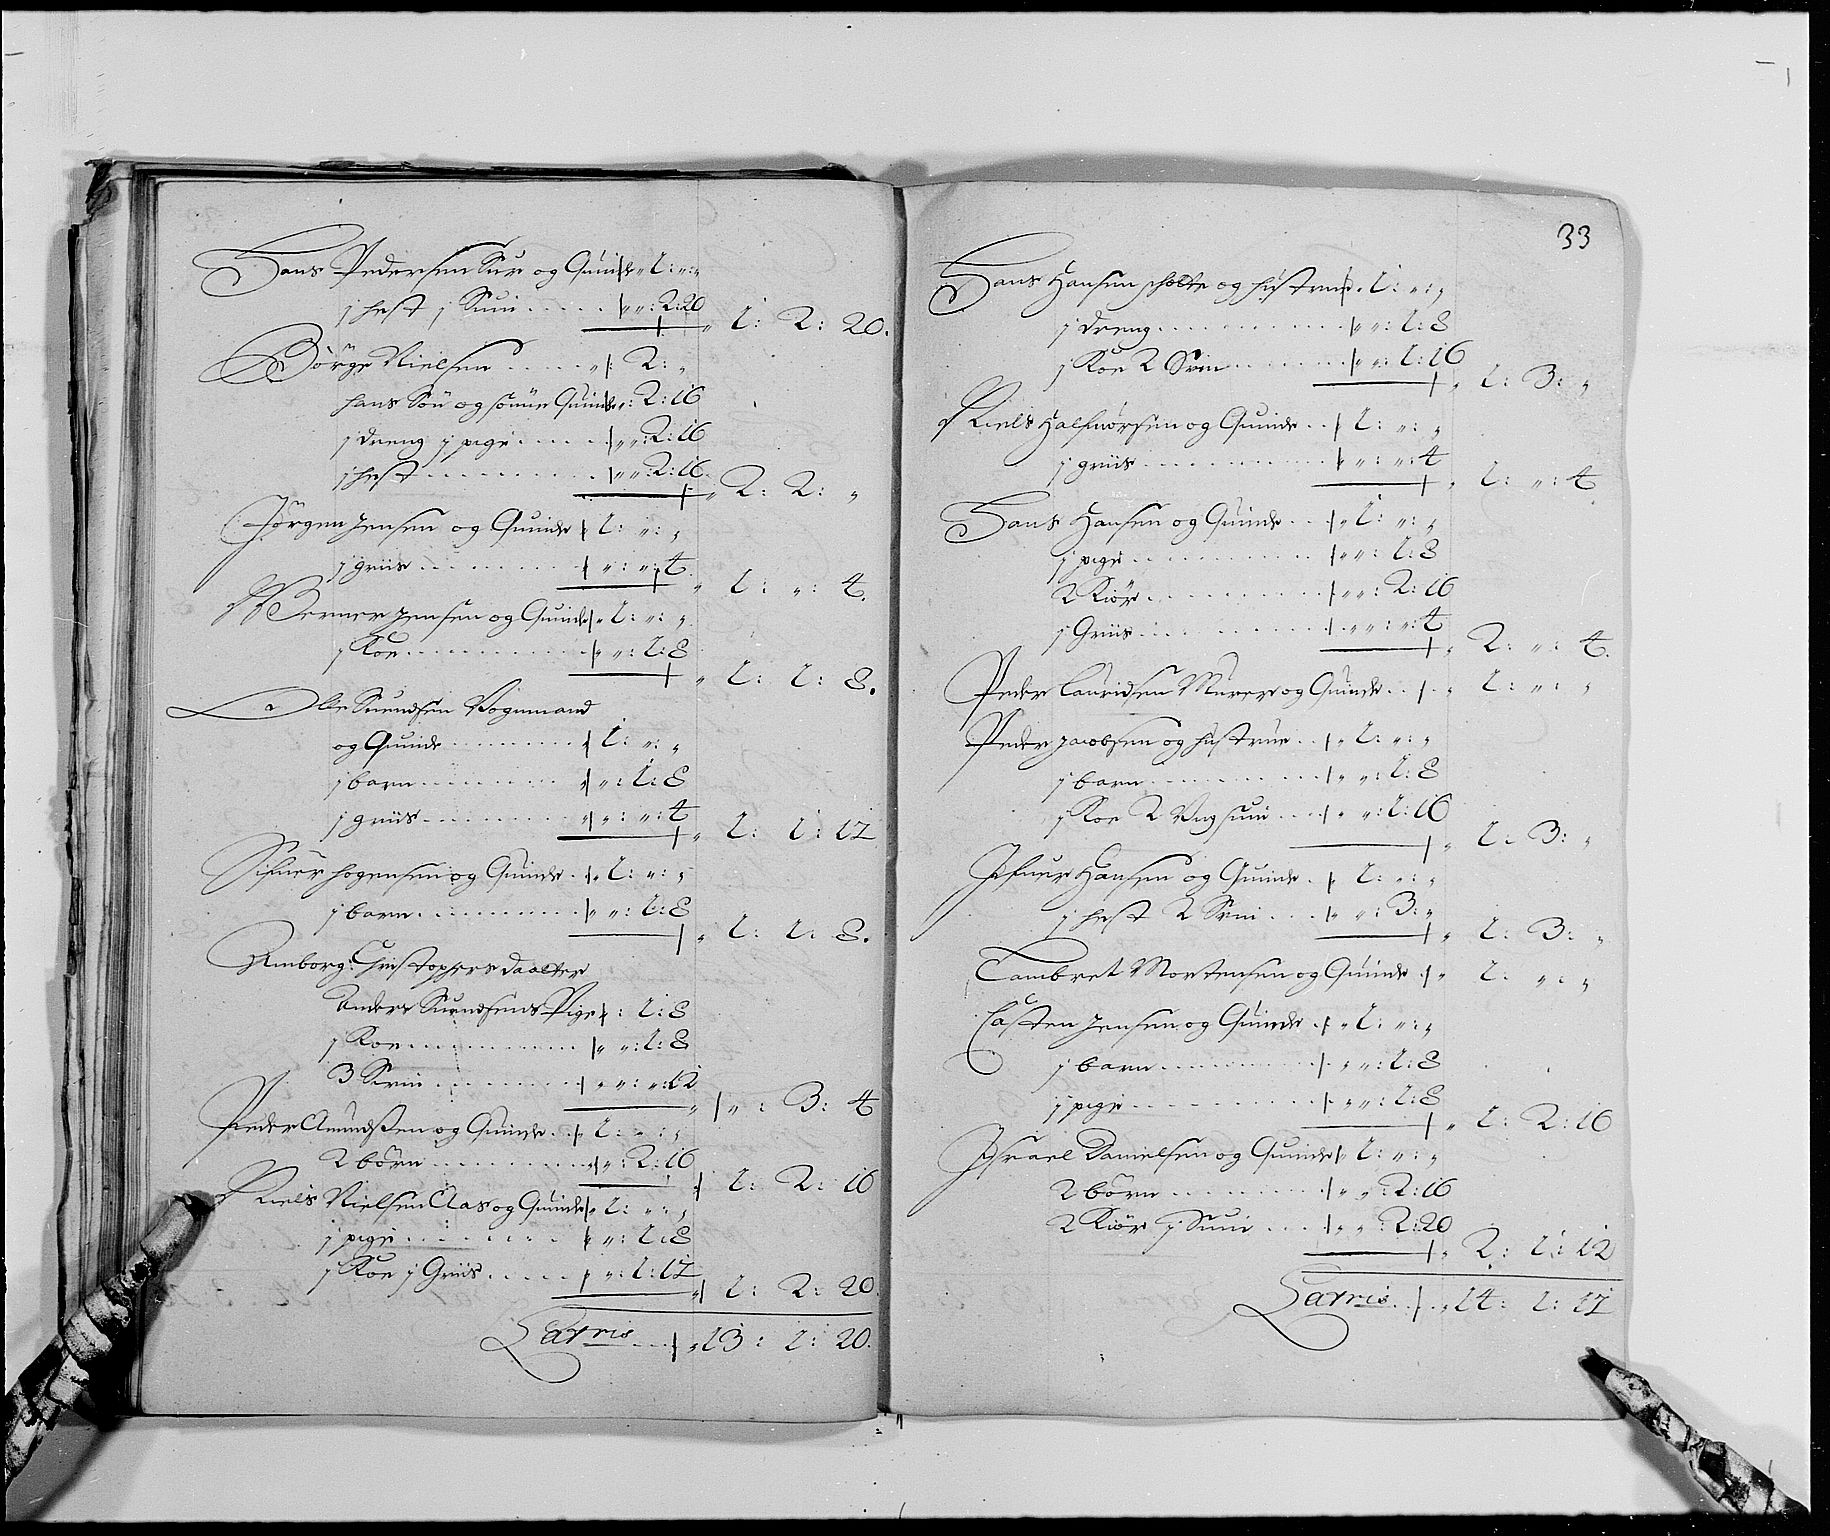 Hans Pedersen Sur og Quinde „ 1: „: „
1 hest 1 Suin ..... „ „: 2: 20
„ 1: 2: 20.
Börge Nielsen ..... „ 2: „
hans Sön og sönne Quinde „: 2: 16
1 dreng 1 pige ..... „ „: 2: 16
1 hest ........ „ „: 2: 16
„ 2: 2: „
Jörgen Jensen og Quinde 1: „: „
1 griis ........ „: „: 4.
„ 1: „: 4.
Werner Jensen og Quinde „ 1: „: „
1 Koe ........ „ „: 1: 8
„ 1: 1: 8.
Ole Suendsen Vognmand
og Quinde ........ 1: „: „
1 barn ........ „: 1: 8
1 griis ........ „: „: 4
„ 1: 1: 12
Sifuer hogensen og Quinde .. „ 1: „: „
1 barn ........ „ „: 1: 8
„ 1: 1: 8.
Amborg: Christophers daatter
Anders Suendsens Pige : 1: 8
1 Koe ........ „ „: 1: 8
3 Svin ........ „ „: „: 12
„ „: 3: 4
Peder Amundsen og Quinde .. 1: „: „
2 börn ........ „: 2: 16
1: 2: 16
Niels Nielsen Aas og Quinde „ 1: „: „
1 pige ........ „: 1: 8
1 Koe 1 Griis ..... „: 1: 12
„ 1: 2: 20.
Larris .... „ 13: 1: 20.
33
Hans Hansen og hustrue . 1: „: „
1 dreng ........ „ „: 1: 8
1 Koe 2 Svin ........ „ „: 1: 16
„ 1: 3: „
Niels Halfuorsen og Quinde .. 1: „: „
1 griis ........ „ „: „: 4
„ 1: „: 4
Hans Hansen og Quinde .. „ 1: „: „
1 pige ........ „ „: 1: 8
2 Kiör ........ „ „: 2: 16
1 Griis ........ „ „: „: 4
„ 2: „: 4.
Peder Lauridsen Murer og Quinde .. „ 1: „: „
Peder Jacobsen og hustrue .. „ 1: „: „
1 barn ........ „ „: 1: 8
1 Koe 2 Ung suin .... „ „: 1: 16
„ 1: 3: „
Ifuer Hansen og Quinde . 1: „: „
1 hest 2 Svin .... „ „: 3: „
„ 1: 3: „
Lambret Mortensen og Quinde . „ 1: „: „
Casten Jensen og Quinde . „ 1: „: „
1 barn ........ „ „: 1: 8
1 pige ........ „ „: 1: 8
„ 1: 2: 16
Israel Danielsen og Quinde „ 1: „: „
2 börn ........ „ „: 2: 16
2 Kiör 1 Suin .... „ „: 2: 20
„ 2: 1: 12
Larris .. „ 14: 1: 12